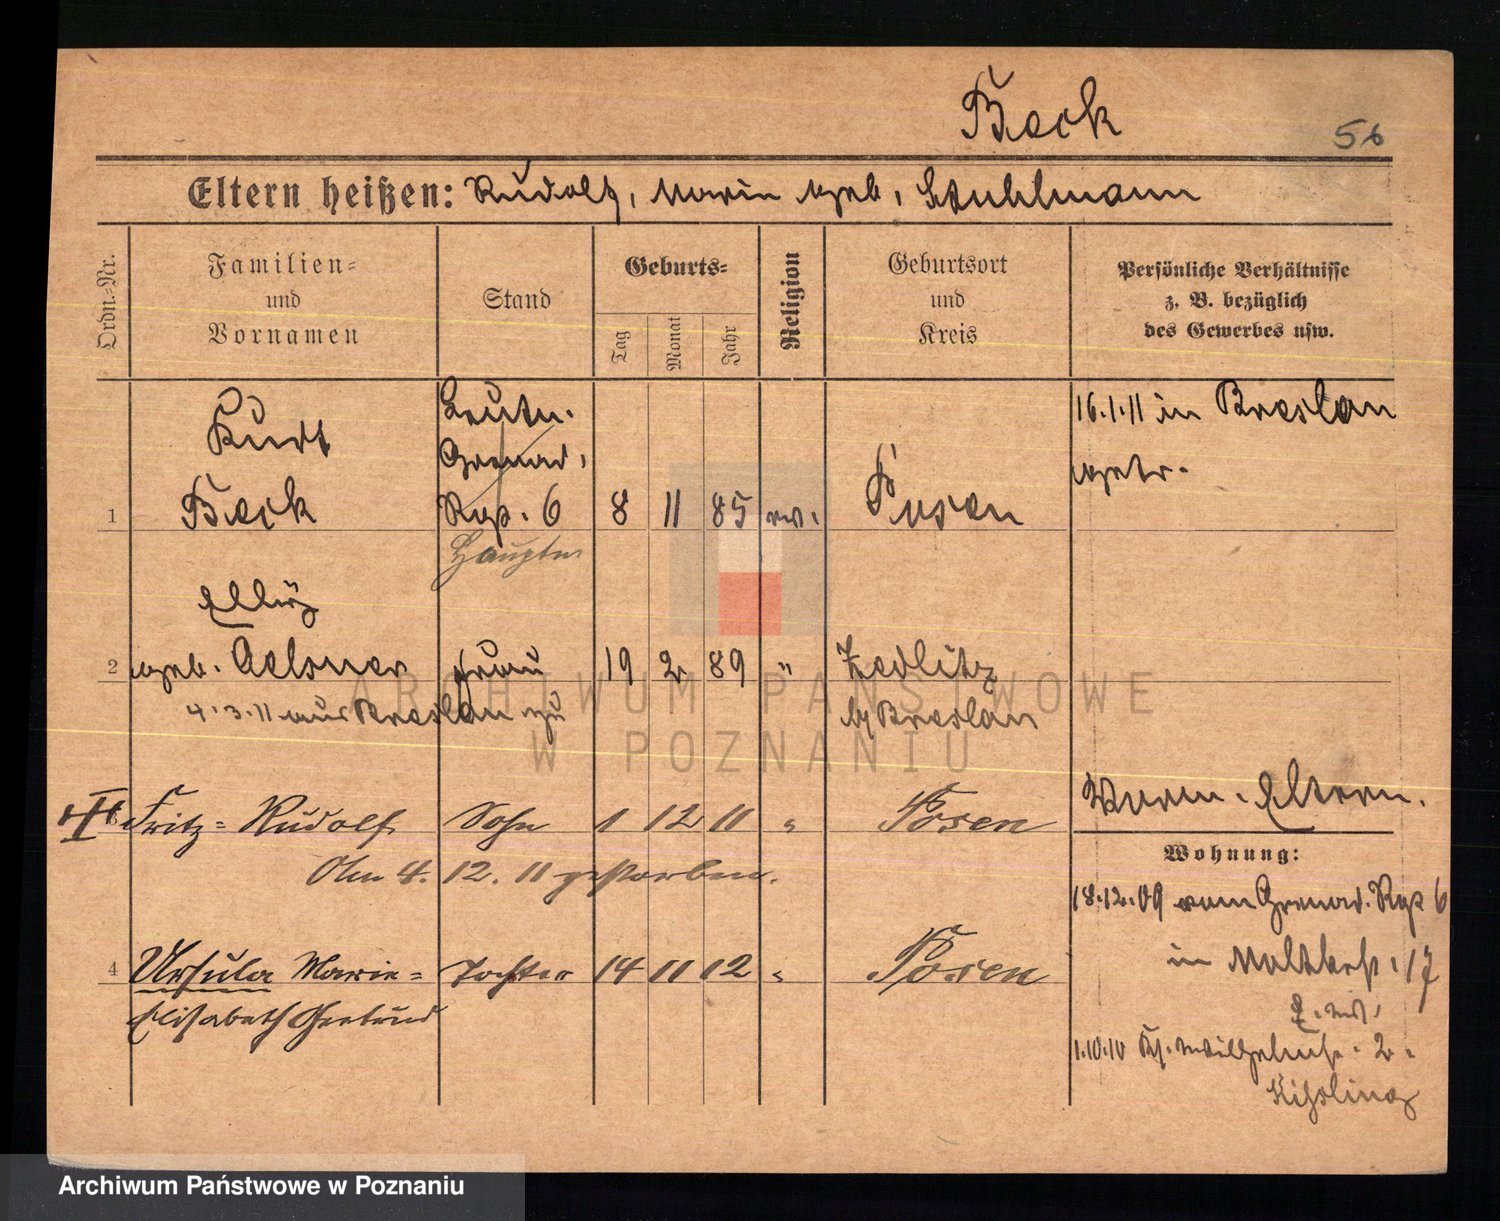 Beck
56
Eltern heißen: Rudolf, Marie geb. Stuhlmann
Ordn.-Nr.
Familien- und Vornamen
Stand
Geburts-
Tag
Monat
Jahr
Religion
Geburtsort und Kreis
Persönliche Verhältnisse z. B. bezüglich des Gewerbes usw.
Kurt
Leutn.
16.1.11 in Breslau
Grenad.
getr.
1 Beck Reg. 6 8 11 85 ev. Posen
Hauptm
Elly
2 geb. Oelsner Frau 19 2 89 " Zedlitz
4.3.11 aus Breslau zu
b/ Breslau
Fritz-Rudolf Sohn 1 12 11 " Posen
Verm. Eltern.
Am 4. 12. 11 gestorben.
Wohnung:
18.12.09 vom Grenad. Reg 6
4 Ursula Marie- Tochter 14 11 12 " Posen
in Moltkestr. 17
Elisabeth Gertrud
1.10.10 Wilhelmstr. 2.
Kißling
ARCHIWUM PAŃSTWOWE
W POZNANIU
Archiwum Państwowe w Poznaniu